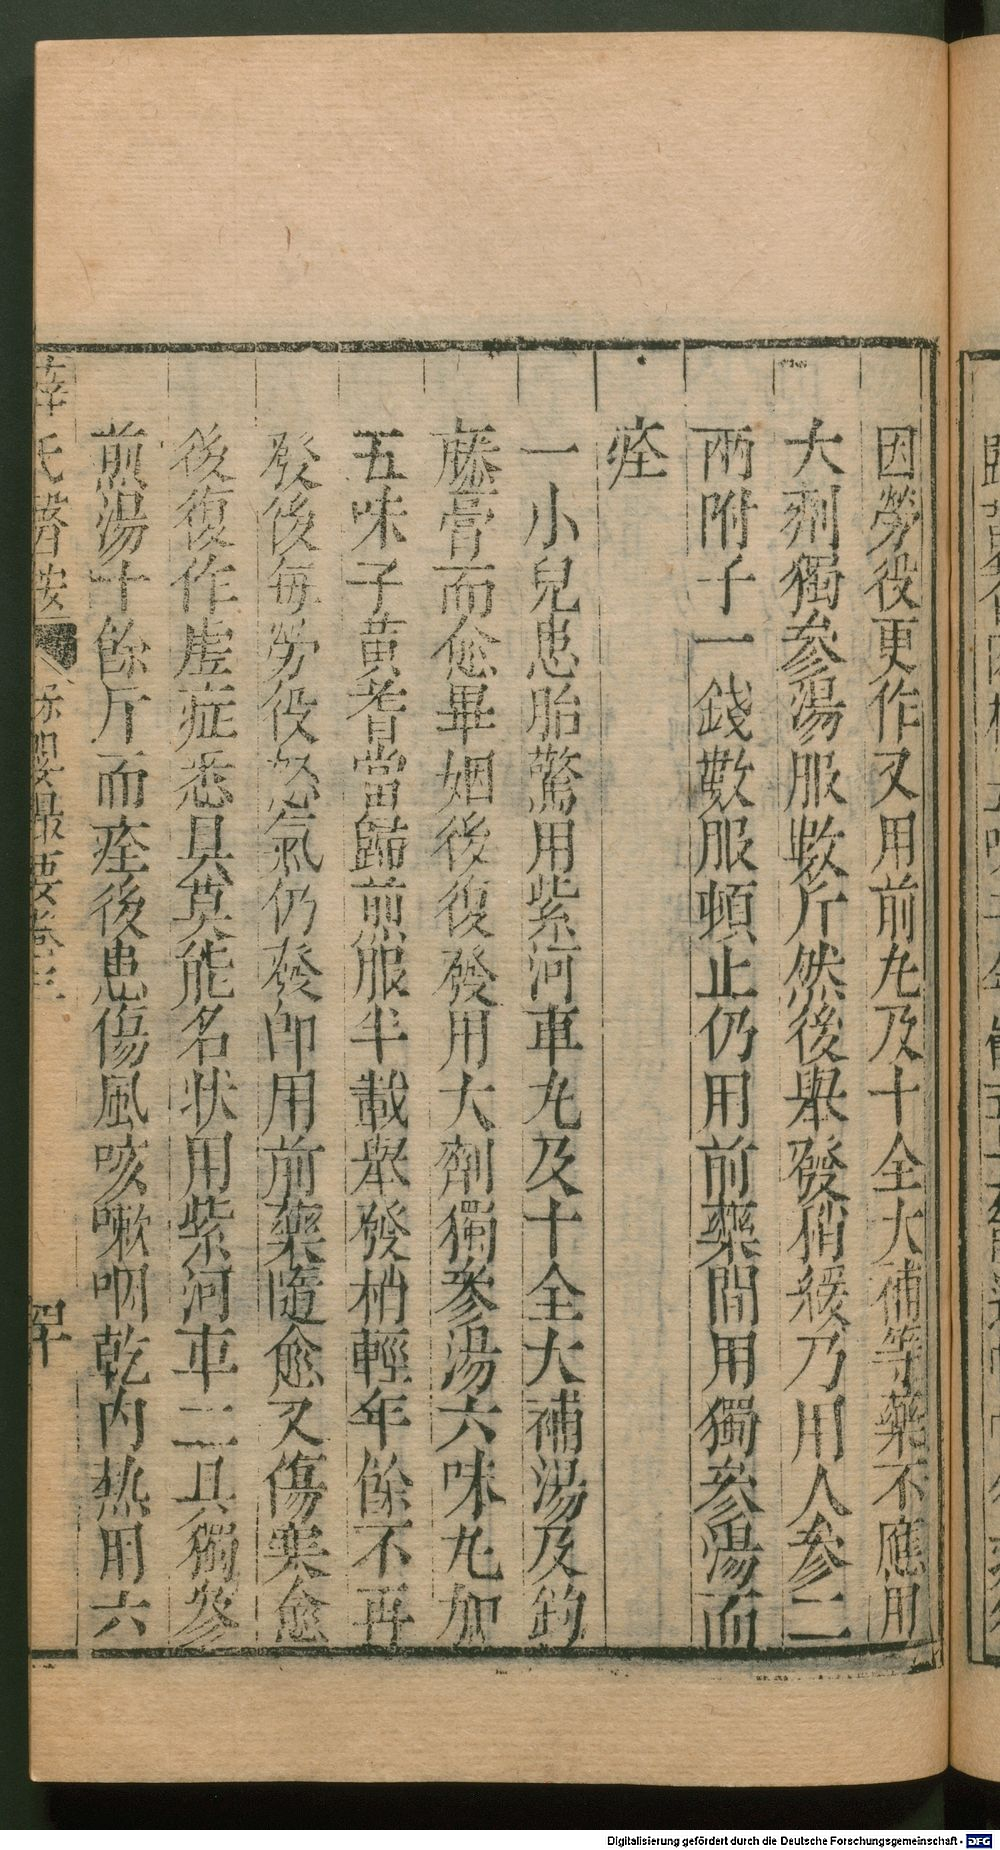 因勞役更作又用前丸及十全大補等藥不應用
大劑獨參湯服數斤然後舉發稍緩乃用人參二
兩附子一錢數服頓止仍用前藥間用獨參湯而
痊
一小兒患胎驚用紫河車丸及十全大補湯及鈞
藤膏而愈畢姻後復發用大劑獨參湯六味丸加
五味子黃耆當歸煎服半載舉發稍輕年餘不再
發後每勞役怒氣仍發卽用前藥隨愈又傷寒愈
後復作虛症悉具莫能名状用紫河車二具獨參
煎湯十餘斤而痊後患傷風咳嗽咽乾內熱用六
薛氏醫按 保嬰撮要卷三 四十
Digitalisierung gefördert durch die Deutsche Forschungsgemeinschaft - DFG